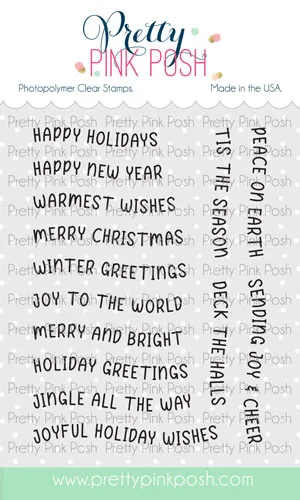 Pretty
PINK POSH
Photopolymer Clear Stamps.
Made in the USA.
HAPPY HOLIDAYS
HAPPY NEW YEAR
WARMEST WISHES
MERRY CHRISTMAS
WINTER GREETINGS
JOY TO THE WORLD
MERRY AND BRIGHT
HOLIDAY GREETINGS
JINGLE ALL THE WAY
JOYFUL HOLIDAY WISHES
TIS THE SEASON
DECK THE HALLS
PEACE ON EARTH
SENDING JOY & CHEER
Pretty Pink Posh
www.prettypinkposh.com